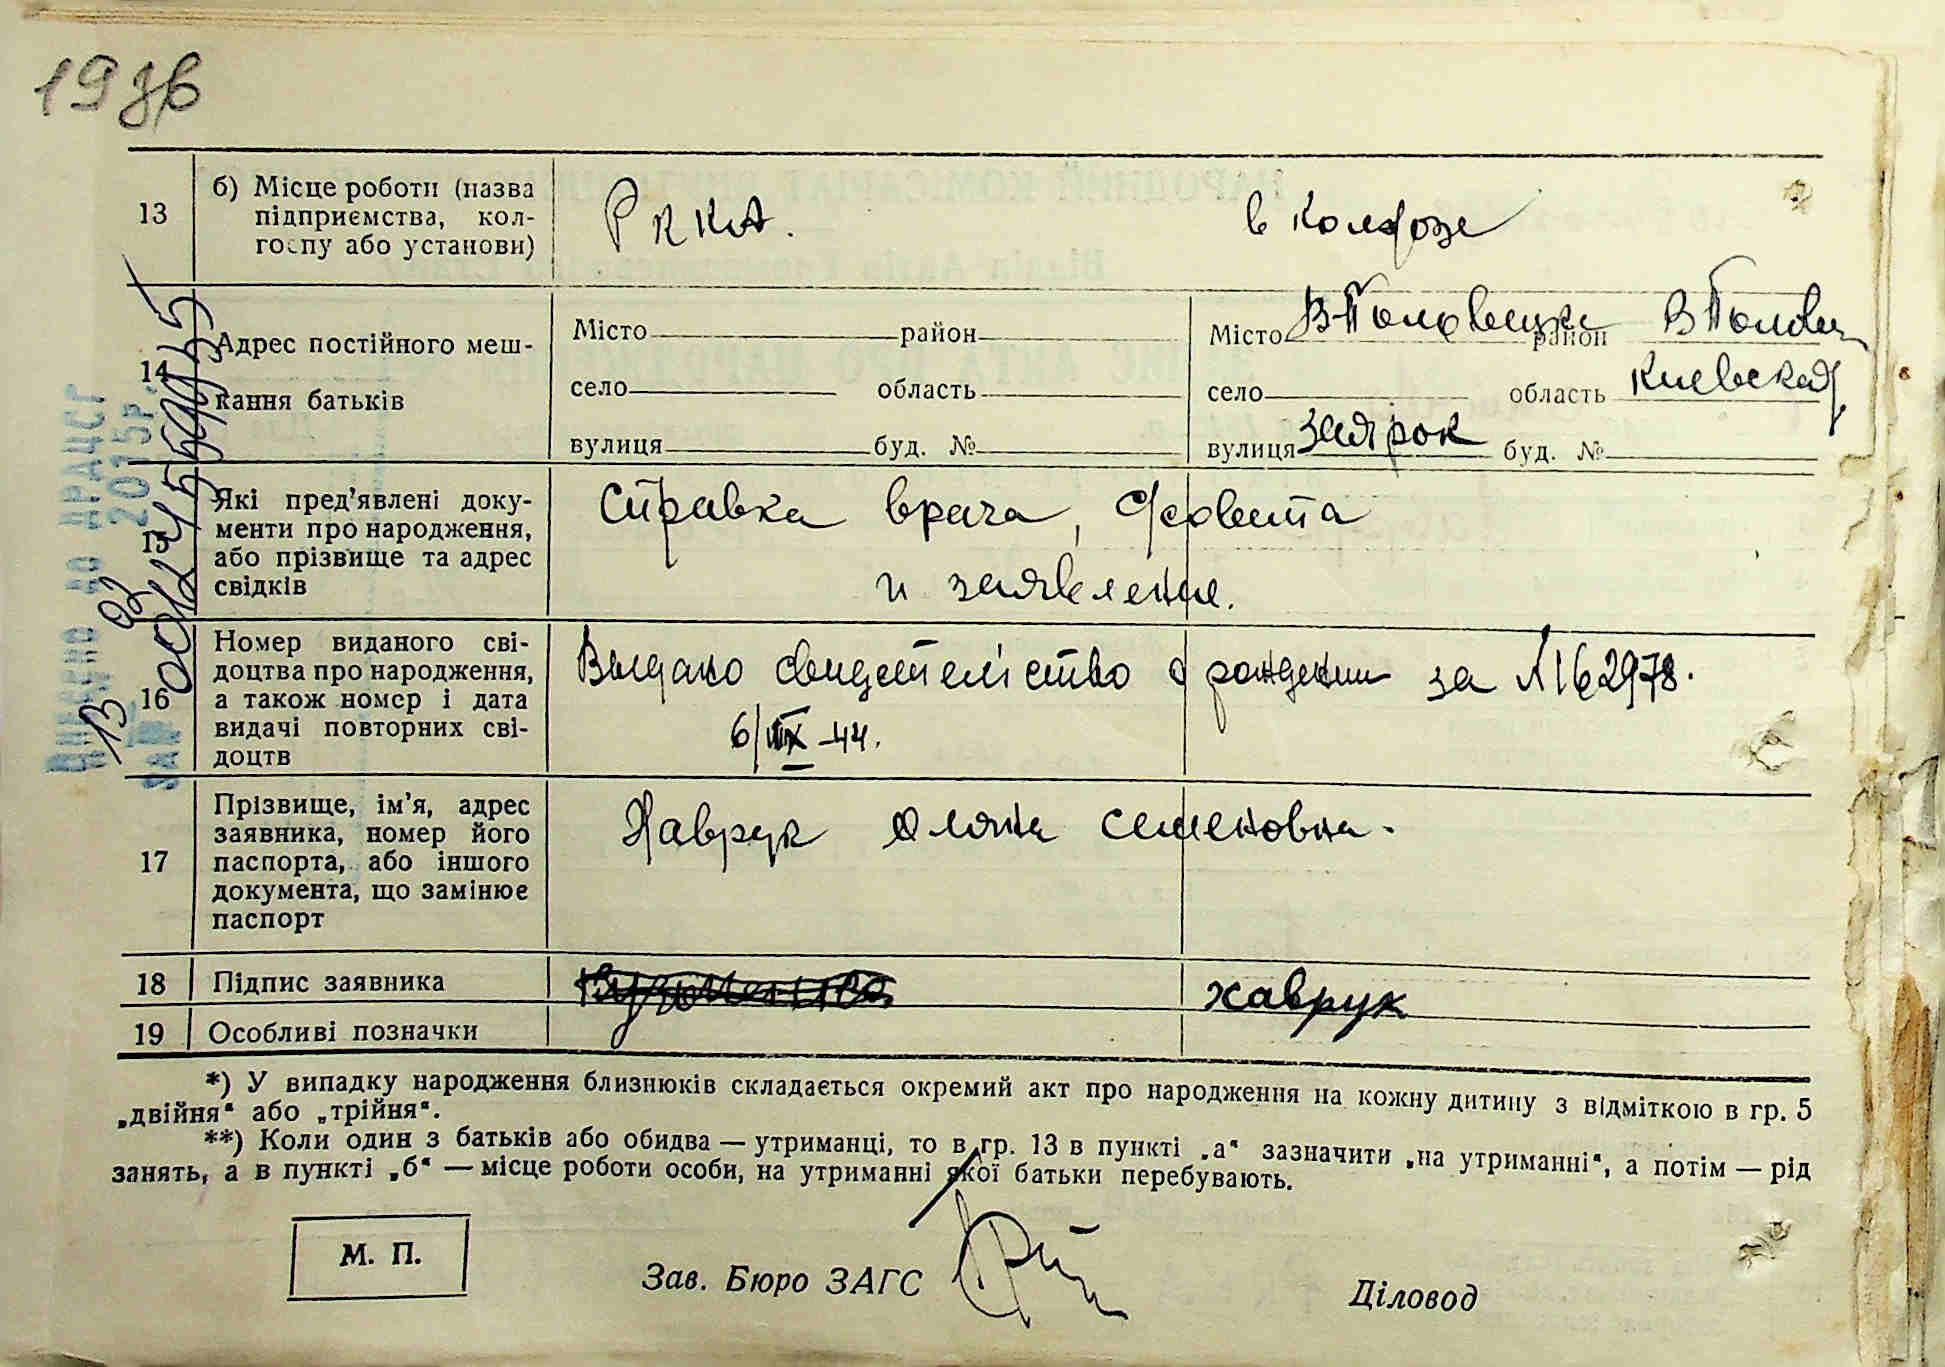 19 зв
13
б) Місце роботи (назва
підприємства, кол-
госпу або установи)
РККА.
в колхозе
14
Адрес постійного меш-
кання батьків
Місто район
село область
вулиця буд. №
Місто В-Половецке район В Полове
село область Киевская
вулиця Заярок буд. №
15
Які пред’явлені доку-
менти про народження,
або прізвище та адрес
свідків
Справка врача, с/совета
и заявление.
16
Номер виданого сві-
доцтва про народження,
а також номер і дата
видачі повторних сві-
доцтв
Выдано свидетельство о рождении за № 162978.
6/IX -44.
17
Прізвище, ім’я, адрес
заявника, номер його
паспорта, або іншого
документа, що замінює
паспорт
Хаврук Оляна Семеновна.
18
Підпис заявника
хаврук
19
Особливі позначки
*) У випадку народження близнюків складається окремий акт про народження на кожну дитину з відміткою в гр. 5
„двійня“ або „трійня“.
**) Коли один з батьків або обидва — утриманці, то в гр. 13 в пункті „а“ зазначити „на утриманні“, а потім — рід
занять, а в пункті „б“ — місце роботи особи, на утриманні якої батьки перебувають.
М. П.
Зав. Бюро ЗАГС
Діловод
до ДРАЦСГ
13 02 2015р.